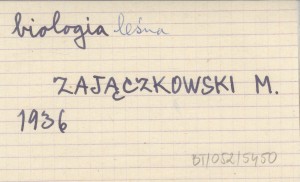 biologia leśna
ZAJĄCZKOWSKI M.
1936
BT/052/5450